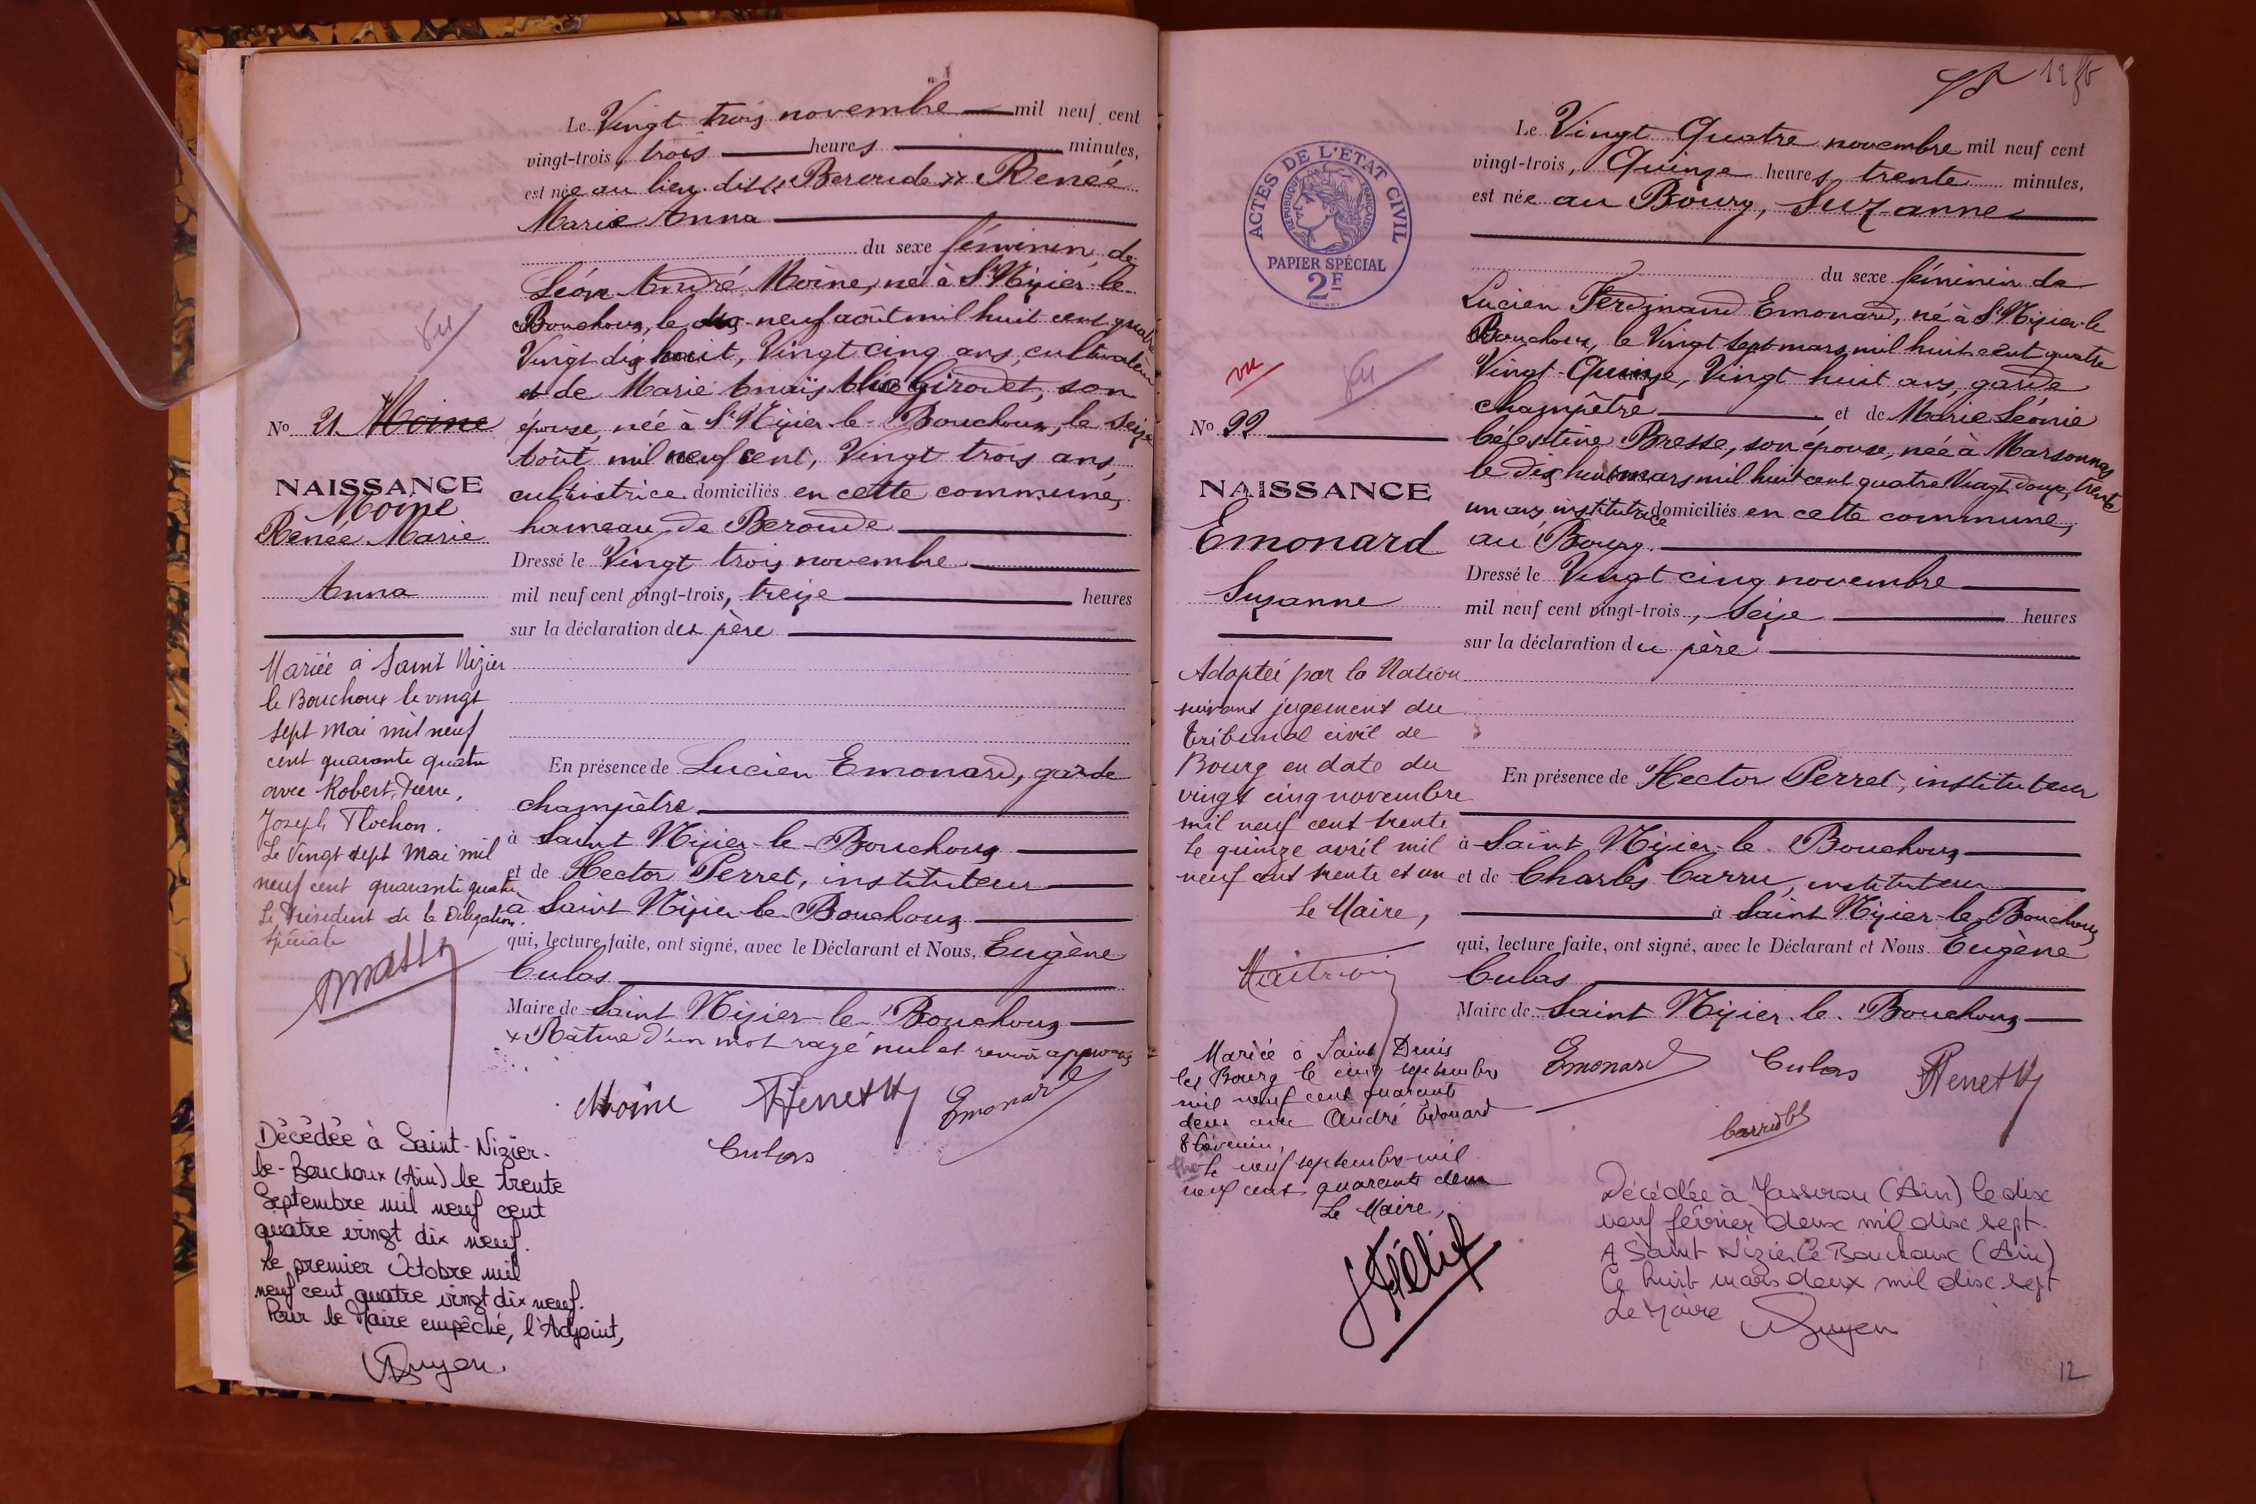 Le Vingt trois novembre mil neuf cent
vingt-trois, trois heures minutes,
est née au lieu dit Beroude × Renée
Marie Anna
du sexe féminin, de
Léon André Moine, né à St Nizier-le-
Bouchoux, le neuf août mil huit cent quatre
Vingt dix huit, Vingt cinq ans, cultivateur
et de Marie Anaïs Girodet, son
épouse, née à St Nizier-le-Bouchoux, le seize
Août mil neuf cent, Vingt trois ans,
cultivatrice domiciliés en cette commune,
hameau de Beroude
Dressé le Vingt trois novembre
mil neuf cent vingt-trois, treize heures
sur la déclaration du père
En présence de Lucien Emonard, garde
champêtre
à Saint Nizier-le-Bouchoux
et de Hector Perret, instituteur
à Saint Nizier-le-Bouchoux
qui, lecture faite, ont signé, avec le Déclarant et Nous, Eugène
Culas
Maire de Saint Nizier-le-Bouchoux
× Rature d'un mot rayé nul et renvoi approuvés
Moine HPerret Emonard
Culas
vu
No 21 Moine
NAISSANCE
Moine
Renée Marie
Anna
Mariée à Saint Nizier
le Bouchoux le vingt
sept mai mil neuf
cent quarante quatre
avec Robert, Pierre,
Joseph Flochon.
Le Vingt sept Mai mil
neuf cent quarante quatre
Le Président de la Délégation
spéciale
Décédée à Saint-Nizier-
le-Bouchoux (Ain) le trente
Septembre mil neuf cent
quatre vingt dix neuf.
Le premier Octobre mil
neuf cent quatre vingt dix neuf.
Pour le Maire empêché, l'Adjoint,
12
Le Vingt Quatre novembre mil neuf cent
vingt-trois, Quinze heures trente minutes,
est née au Bourg, Suzanne
du sexe féminin de
Lucien Ferdinand Emonard, né à St Nizier-le
Bouchoux, le Vingt sept mars mil huit cent quatre
Vingt-Quinze, Vingt huit ans, garde
champêtre et de Marie Léonie
Célestine Bresse, son épouse, née à Marsonnas
le dix huit mars mil huit cent quatre Vingt douze, trente
un ans institutrice domiciliés en cette commune,
au Bourg.
Dressé le Vingt cinq novembre
mil neuf cent vingt-trois, seize heures
sur la déclaration du père
En présence de Hector Perret, instituteur
à Saint Nizier-le-Bouchoux
et de Charles Carru, instituteur
à Saint Nizier-le-Bouchoux
qui, lecture faite, ont signé, avec le Déclarant et Nous Eugène
Culas
Maire de Saint Nizier-le-Bouchoux
Emonard Culas HPerret
Carru Ch
ACTES DE L'ETAT CIVIL
REPUBLIQUE FRANÇAISE
PAPIER SPÉCIAL
2F
vu
vu
No 22
NAISSANCE
Emonard
Suzanne
Adoptée par la Nation
suivant jugement du
tribunal civil de
Bourg en date du
vingt cinq novembre
mil neuf cent trente
Le quinze avril mil
neuf cent trente et un
Le Maire,
Mariée à Saint Denis
les Bourg le cinq septembre
mil neuf cent quarante
deux avec André Edouard
Thévenin,
Le neuf septembre mil
neuf cent quarante deux
Le Maire,
Décédée à Jasseron (Ain) le dix
neuf février deux mil dix sept.
A Saint Nizier Le Bouchoux (Ain)
Le huit mars deux mil dix sept
Le Maire
12